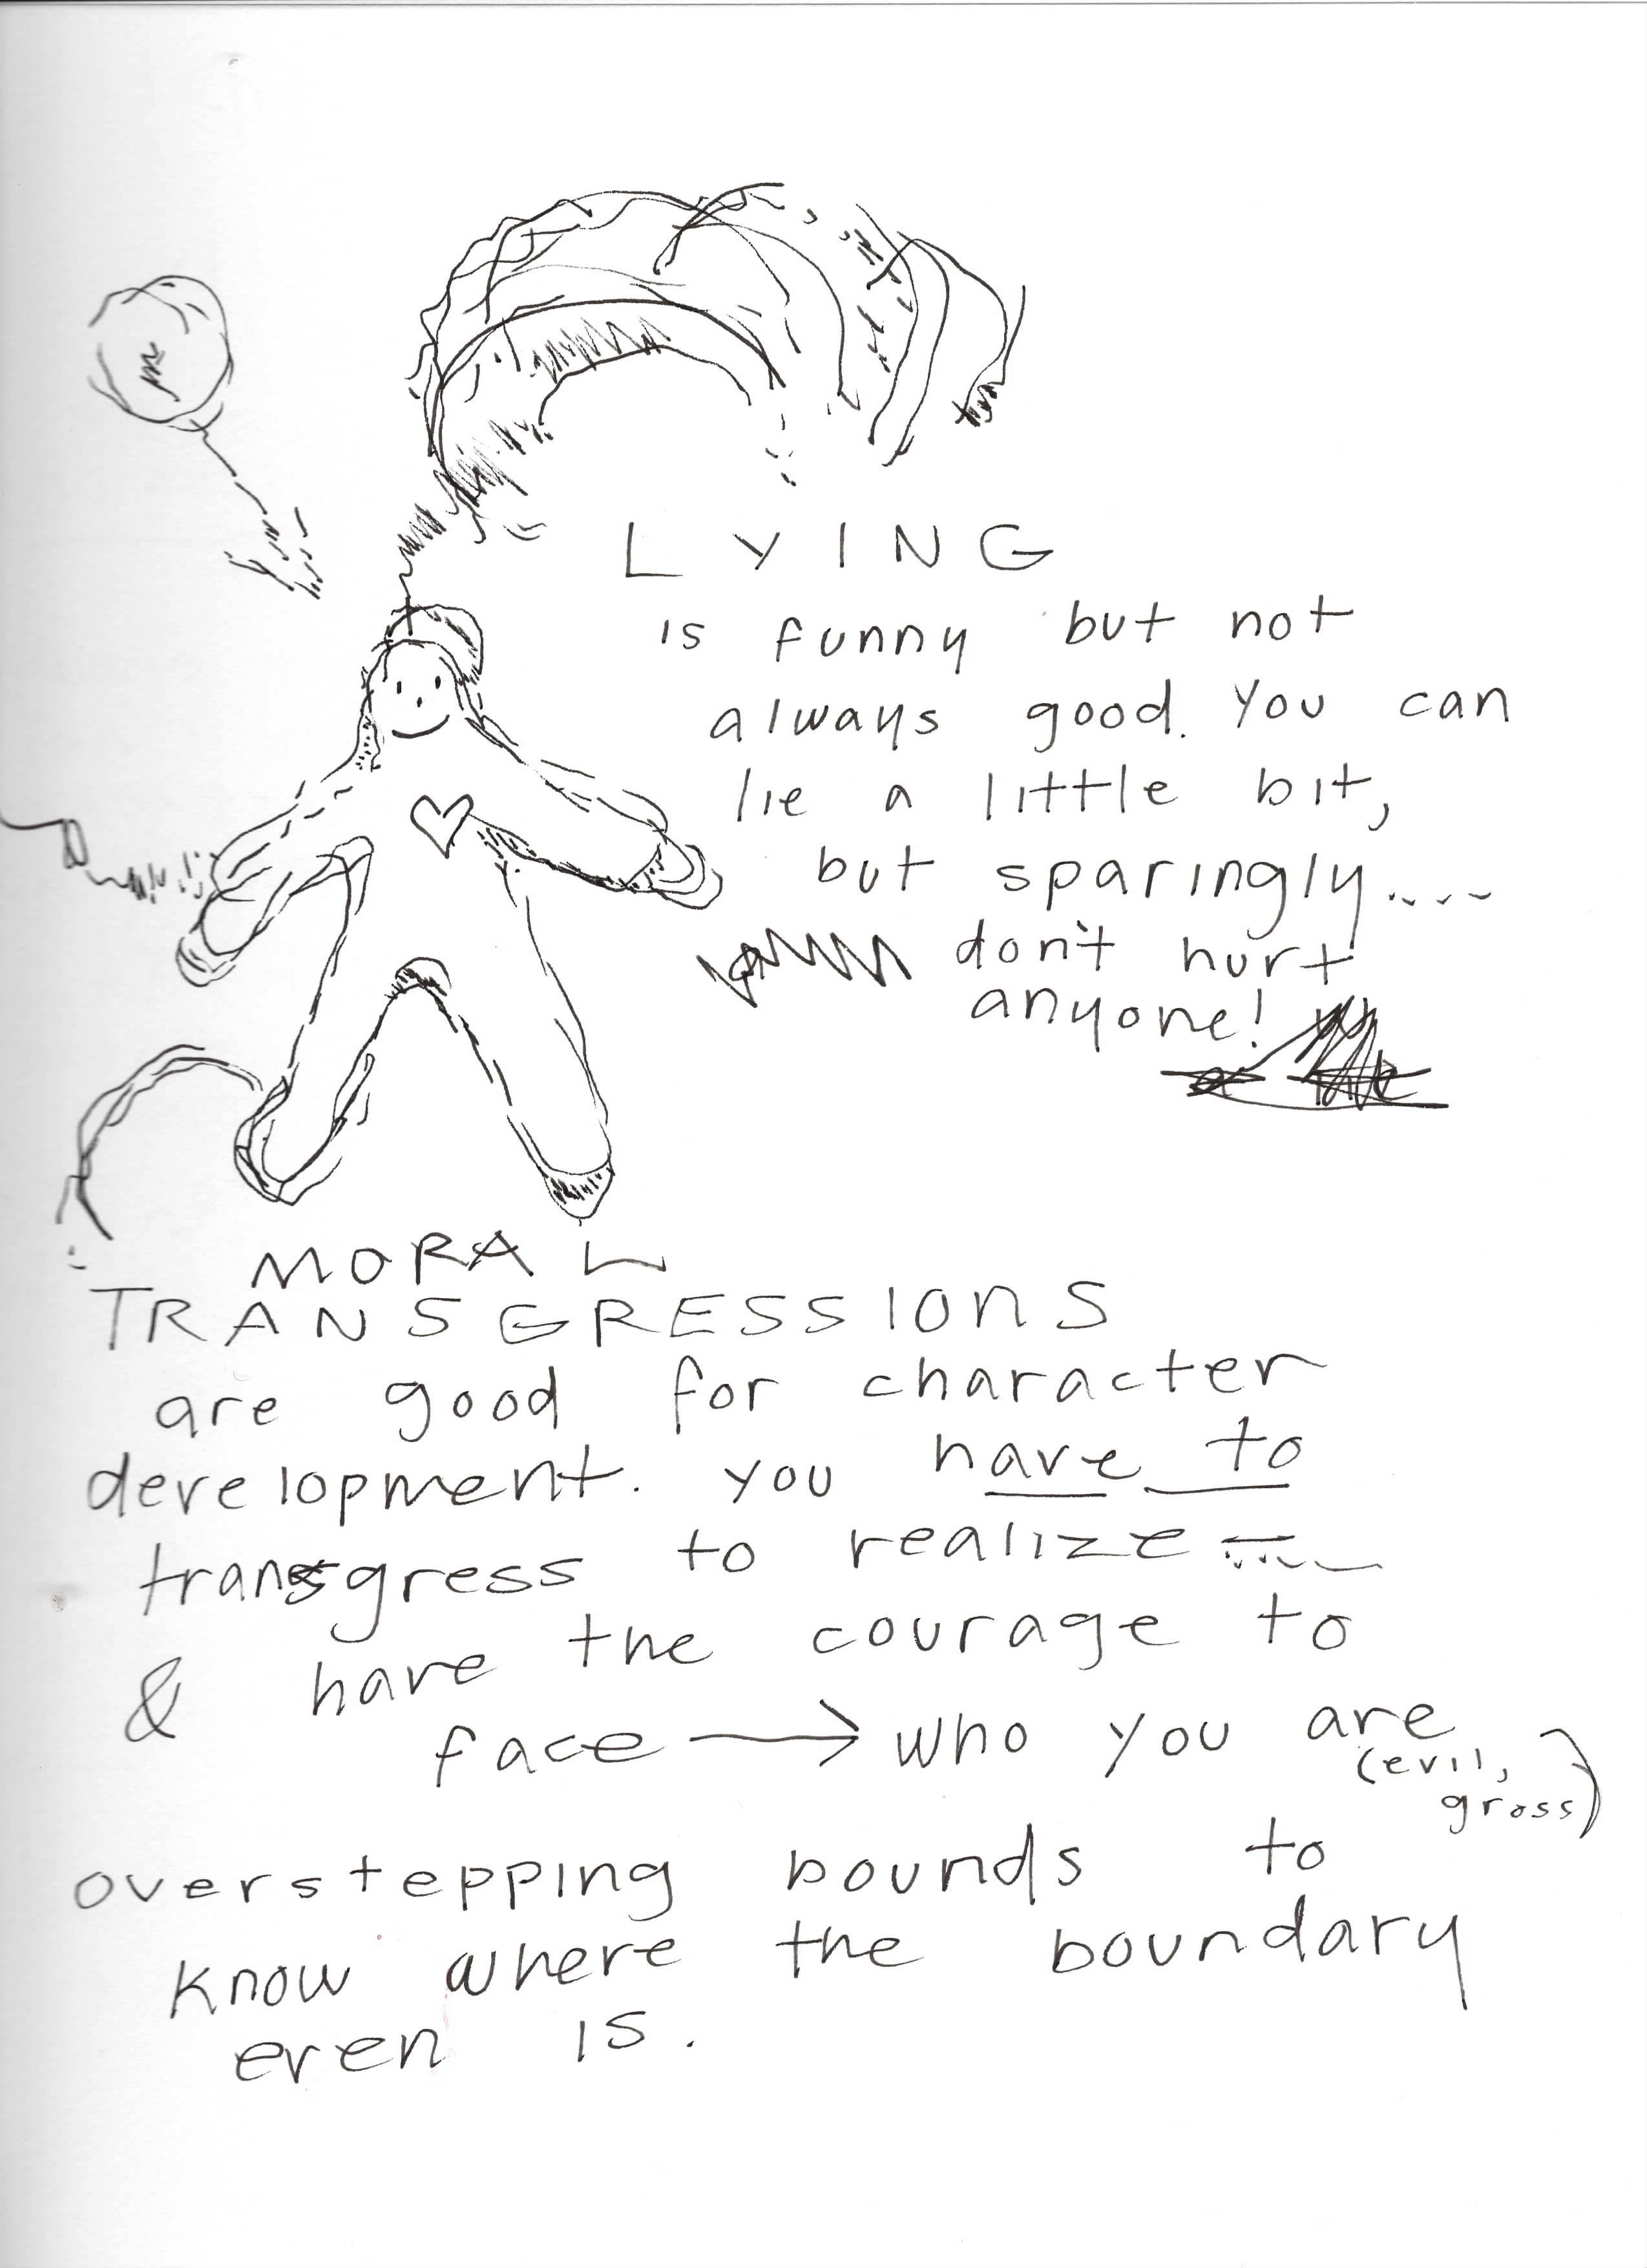 LYING
is funny but not
always good. You can
lie a little bit,
but sparingly....
don't hurt
anyone!
MORAL
TRANSGRESSIONS
are good for character
development. you have to
transgress to realize
& have the courage to
face → who you are
(evil,
gross)
overstepping bounds to
know where the boundary
even is.